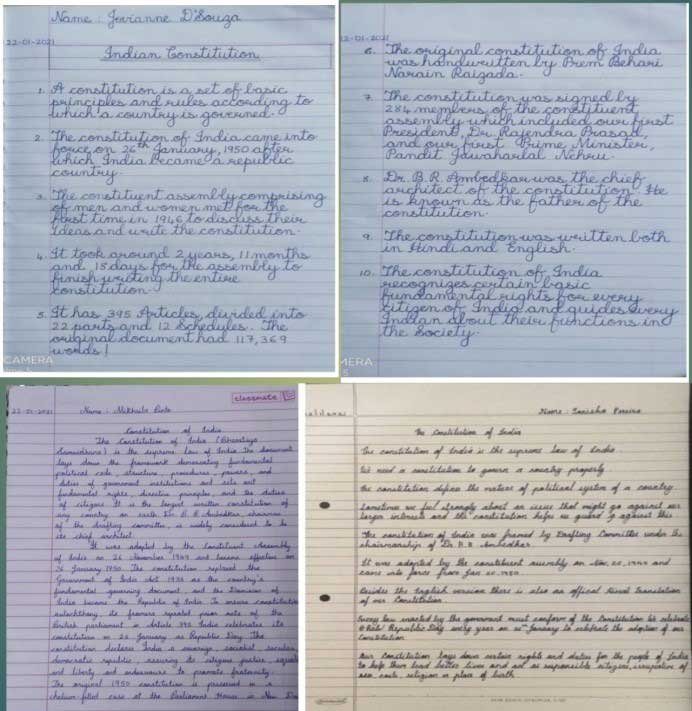 Name : Jovianne D'Souza
22-01-2021
Indian Constitution
1. A constitution is a set of basic
principles and rules according to
which a country is governed.
2. The constitution of India came into
force, on 26th January, 1950 after
which India became a republic
country.
3. The constituent assembly comprising
of men and women met for the
first time in 1946 to discuss their
Ideas and write the constitution.
4. It took around 2 years, 11 months
and 18 days for the assembly to
finish writing the entire
constitution.
5. It has 395 Articles, divided into
22 parts and 12 Schedules. The
original document had 117,369
words!
CAMERA
22-01-2021
6. The original constitution of India
was handwritten by Prem Behari
Narain Raizada.
7. The constitution was signed by
284 members of the constituent
assembly which included our first
President, Dr. Rajendra Prasad,
and our first Prime Minister,
Pandit Jawaharlal Nehru.
8. Dr. B. R. Ambedkar was the chief
architect of the constitution. He
is known as the father of the
constitution.
9. The constitution was written both
in Hindi and English.
10. The constitution of India
recognizes certain basic
fundamental rights for every
citizen of India and guides every
Indian about their functions in
the Society.
MERA
classmate
22-01-2021 Name : Pinto
Constitution of India
The Constitution of India (Bharatiya
) is the supreme law of India. The document
lays down the framework demarcating fundamental
political code, structure, procedures, powers, and
duties of government institutions and sets out
fundamental rights, directive principles, and the duties
of citizens. It is the longest written constitution of
any country on earth. Dr. B R Ambedkar, chairman
of the drafting committee, is widely considered to be
its chief architect.
It was adopted by the Constituent Assembly
of India on 26 November 1949 and became effective on
26 January 1950. The constitution replaced the
Government of India Act 1935 as the country's
fundamental governing document, and the Dominion of
India became the Republic of India. To ensure constitutional
autochthony, its framers repealed prior acts of the
British parliament in Article 395. India celebrates its
constitution on 26 January as Republic Day. The
constitution declares India a sovereign, socialist, secular,
democratic republic, assuring its citizens justice, equality
and liberty and endeavours to promote fraternity.
The original 1950 constitution is preserved in a
helium-filled case at the Parliament House in New
Name : Tanisha Pereira
The Constitution of India
The constitution of India is the supreme law of India.
We need a constitution to govern a country properly.
The constitution defines the nature of political system of a country.
Sometimes we feel strongly about an issue that might go against our
larger interests and the constitution helps us guard against this.
The constitution of India was framed by Drafting Committee under the
chairmanship of Dr. B. R. Ambedkar.
It was adopted by the constituent assembly on Nov. 26, 1949 and
came into force from Jan 26, 1950.
Besides the English version there is also an offical Hindi translation
of our Constitution.
Every law enacted by the government must conform of the Constitution. We celebrate
Republic Day every year on 26th January to celebrate the adoption of our
Constitution.
Our Constitution lays down certain rights and duties for the people of India
to help them lead better lives and act as responsible citizens, irrespective of
sex, caste, religion or place of birth.